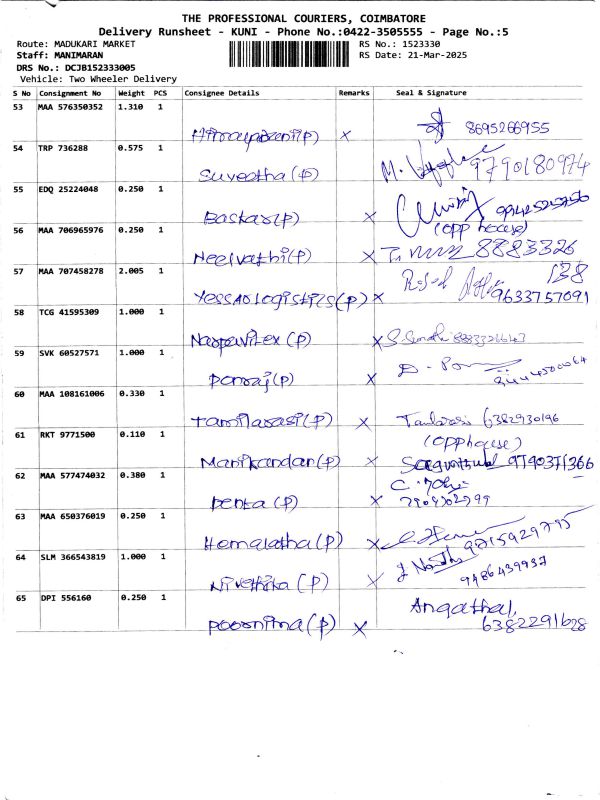 THE PROFESSIONAL COURIERS, COIMBATORE
Delivery Runsheet - KUNI - Phone No.:0422-3505555 - Page No.:5
Route: MADUKARI MARKET RS No.: 1523330
Staff: MANIMARAN RS Date: 21-Mar-2025
DRS No.: DCJB152333005
Vehicle: Two Wheeler Delivery
S No Consignment No Weight PCS Consignee Details Remarks Seal & Signature
53 MAA 576350352 1.310 1
(P) x 8695266955
54 TRP 736288 0.575 1
Suveetha (P) M. 9790180974
55 EDQ 25224048 0.250 1
Baskar(P) x
(opp house)
56 MAA 706965976 0.250 1
Neelvathi(P) x 8883326
138
57 MAA 707458278 2.005 1
(P) x 9633757091
58 TCG 41595309 1.000 1
(P) x
59 SVK 60527571 1.000 1
Ponraj(P) x D.
60 MAA 108161006 0.330 1
Tamilarasi(P) x 6382930196
(opp house)
61 RKT 9771500 0.110 1
Manikandan(P) x 9790371366
62 MAA 577474032 0.380 1
Penta (P) x
63 MAA 650376019 0.250 1
Hemalatha(P) x 9715929795
64 SLM 366543819 1.000 1
Nivethika (P) x 9486439937
65 DPI 556160 0.250 1
Poornima(P) x Angathal,
6382291628